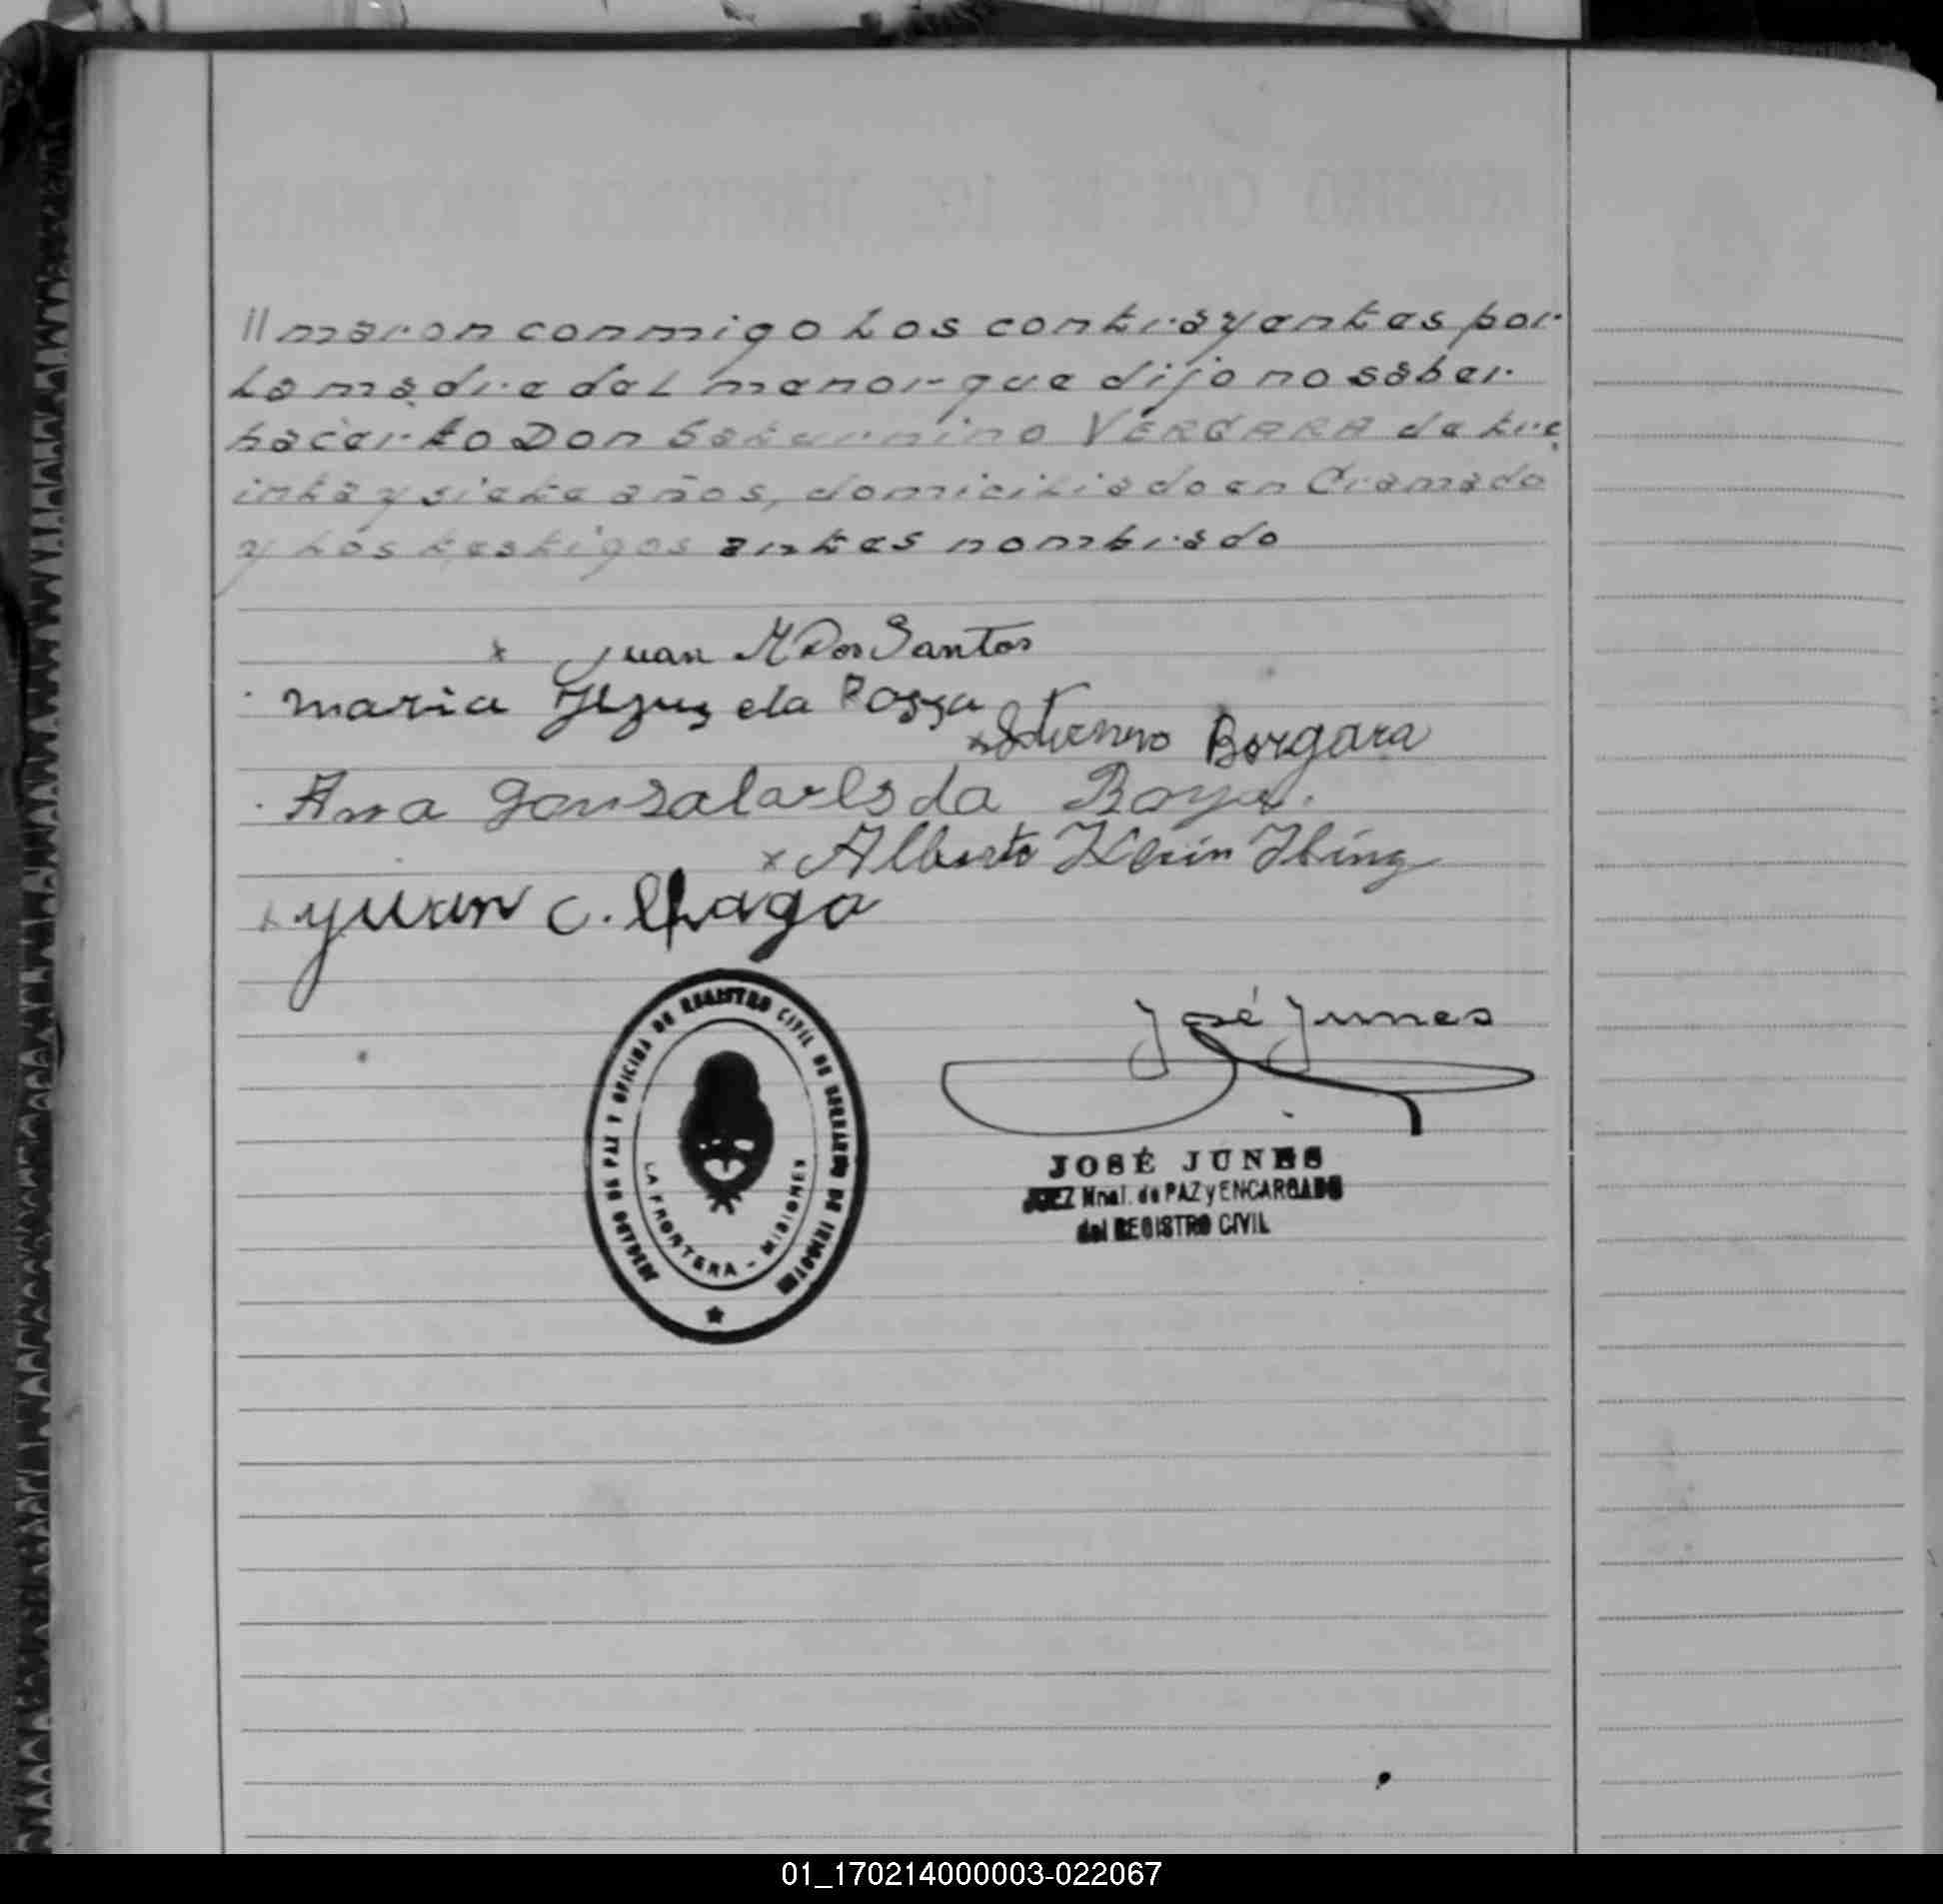 //maron conmigo los contrayentes por
la madre del menor que dijo no saber
hacerlo Don Saturnino VERGARA de tre
inta y siete años, domiciliado en Oramado
y los testigos antes nombrado
x Juan M Dos Santos
maria Jesus da Rossa
x Borgara
Ana da
x Alberto Klein Ibing
x yuan c. Chaga
JUZGADO DE PAZ Y OFICINA DE REGISTRO CIVIL DE BERNARDO DE IRIGOYEN
LA FRONTERA - MISIONES
José Junes
JOSÉ JUNES
JUEZ Nnal. de PAZ y ENCARGADO
del REGISTRO CIVIL
01_170214000003-022067